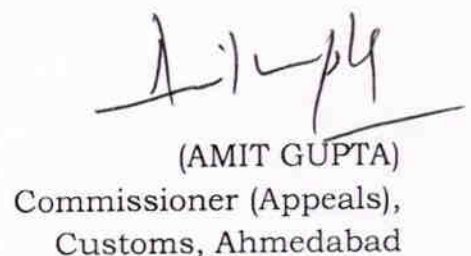 (AMIT GUPTA)
Commissioner (Appeals),
Customs, Ahmedabad